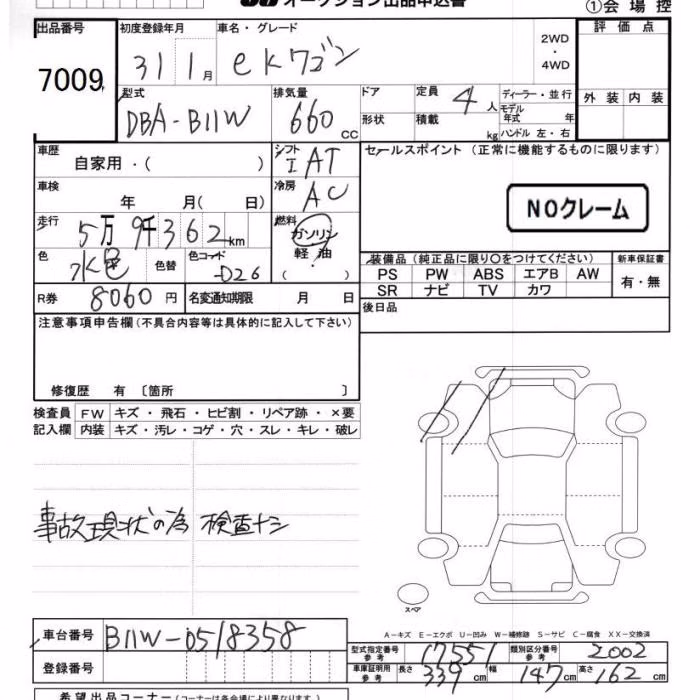 オークション出品申込書
①会場控
出品番号 7009
初度登録年月 31 1月
車名・グレード ekワゴン
2WD・4WD
評価点
外装 内装
型式 DBA-B11W
排気量 660 CC
ドア
形状
定員 4人
積載 kg
ディーラー・並行
モデル年式 年
ハンドル 左・右
車歴 自家用・( )
シフト IAT
セールスポイント (正常に機能するものに限ります)
車検 年 月( 日)
冷房 AC
NOクレーム
走行 5万9千362km
燃料 ガソリン
軽油
( ・ )
色 水色 色替
色コード D26
装備品 (純正品に限り○をつけてください)
新車保証書
PS PW ABS エアB AW
SR ナビ TV カワ
有・無
R券 8060円
名変通知期限 月 日
後日品
注意事項申告欄(不具合内容等は具体的に記入して下さい)
修復歴 有 〔箇所 〕
検査員 FW キズ・飛石・ヒビ割・リペア跡・×要
記入欄 内装 キズ・汚レ・コゲ・穴・スレ・キレ・破レ
事故現状の為 検査ナシ
スペア
A-キズ E-エクボ U-凹み W-補修跡 S-サビ C-腐食 XX-交換済
車台番号 B11W-0518358
型式指定番号 参考 17551
類別区分番号 参考 2002
登録番号
車庫証明用 参考 長さ 339cm 幅 147cm 高さ 162cm
希望出品コーナー(コーナーは各会場により異なります)